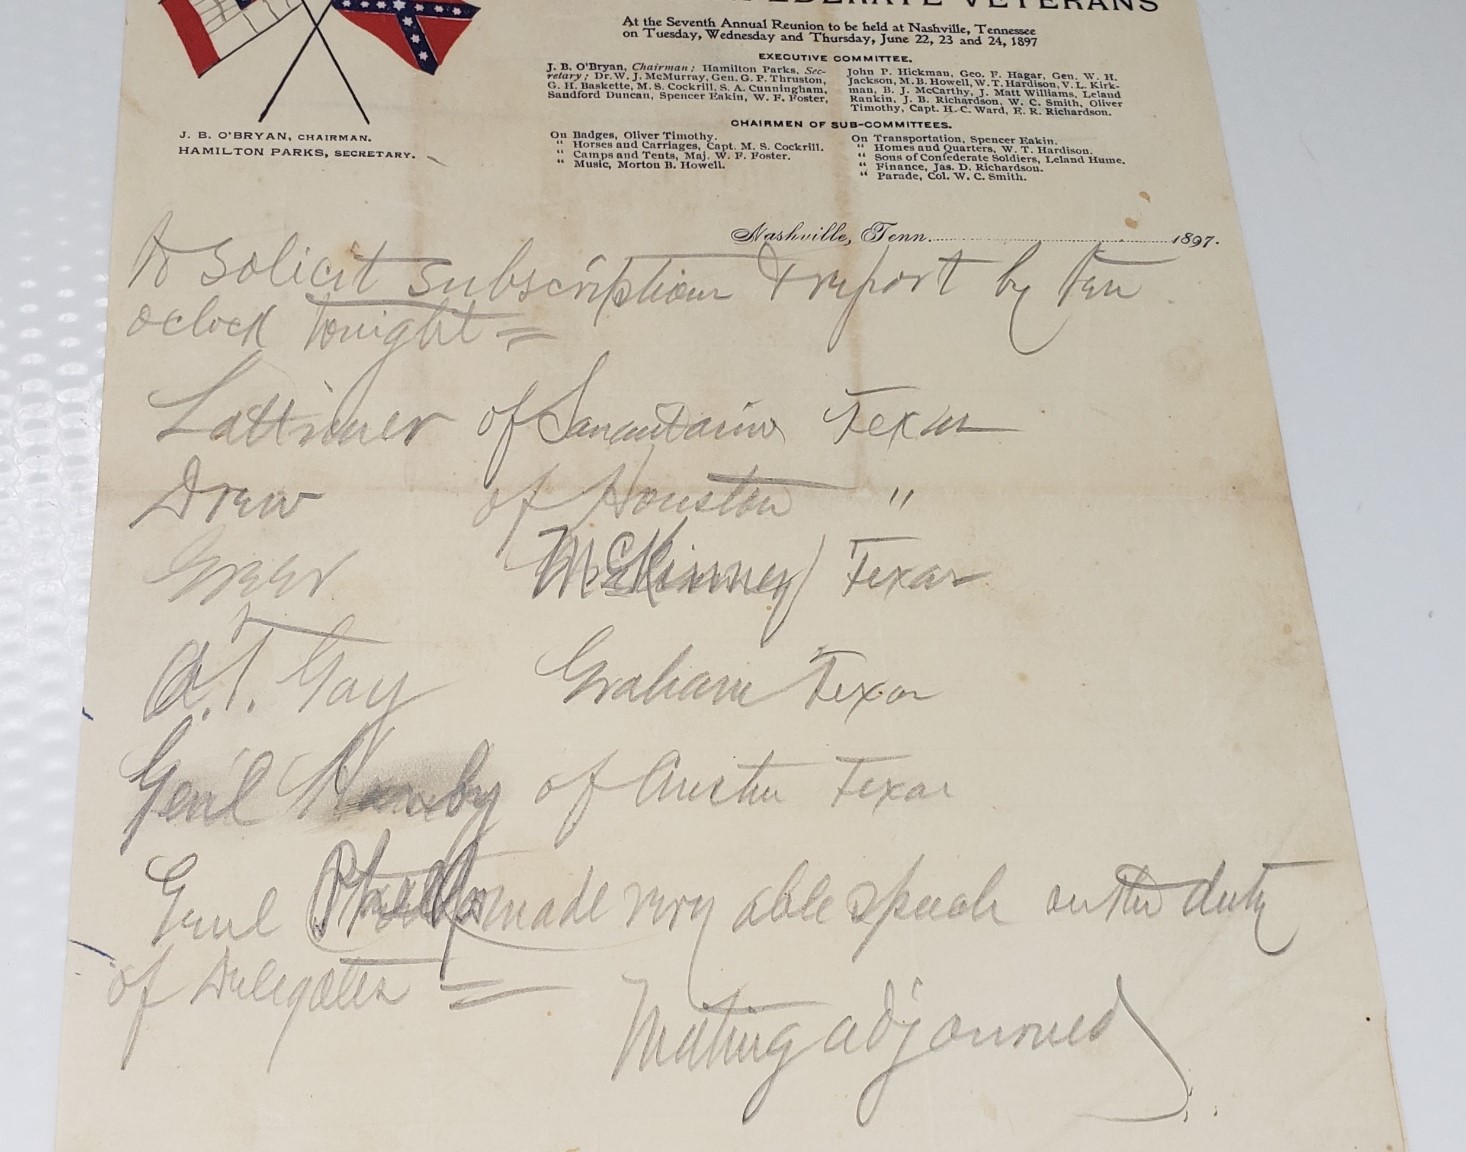 VETERANS
At the Seventh Annual Reunion to be held at Nashville, Tennessee
on Tuesday, Wednesday and Thursday, June 22, 23 and 24, 1897
EXECUTIVE COMMITTEE.
J. B. O'Bryan, Chairman; Hamilton Parks, Sec-
retary; Dr. W. J. McMurray, Gen. G. P. Thruston,
G. H. Baskette, M. S. Cockrill, S. A. Cunningham,
Sandford Duncan, Spencer Eakin, W. F. Foster,
John P. Hickman, Geo. F. Hagar, Gen. W. H.
Jackson, M. B. Howell, W. T. Hardison, V. L. Kirk-
man, B. J. McCarthy, J. Matt Williams, Leland
Rankin, J. B. Richardson, W. C. Smith, Oliver
Timothy, Capt. H. C. Ward, E. R. Richardson.
CHAIRMEN OF SUB-COMMITTEES.
On Badges, Oliver Timothy.
" Horses and Carriages, Capt. M. S. Cockrill.
" Camps and Tents, Maj. W. F. Foster.
" Music, Morton B. Howell.
On Transportation, Spencer Eakin.
" Homes and Quarters, W. T. Hardison.
" Sons of Confederate Soldiers, Leland Hume.
" Finance, Jas. D. Richardson.
" Parade, Col. W. C. Smith.
J. B. O'BRYAN, CHAIRMAN.
HAMILTON PARKS, SECRETARY.
Nashville, Tenn. 1897.
to solicit subscription & report by ten
oclock tonight =
Lattimer of Texas
Drew of Houston "
Greer McKinney Texas
A. T. Gay Graham Texas
Genl of Austin Texas
Genl made very able speech on the duty
of Delegates =
Meeting adjourned